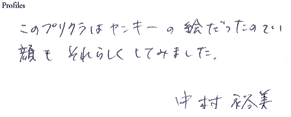 Profiles
このプリクラはヤンキーの絵だったのでい
顔も それらしくしてみました。
中村裕美